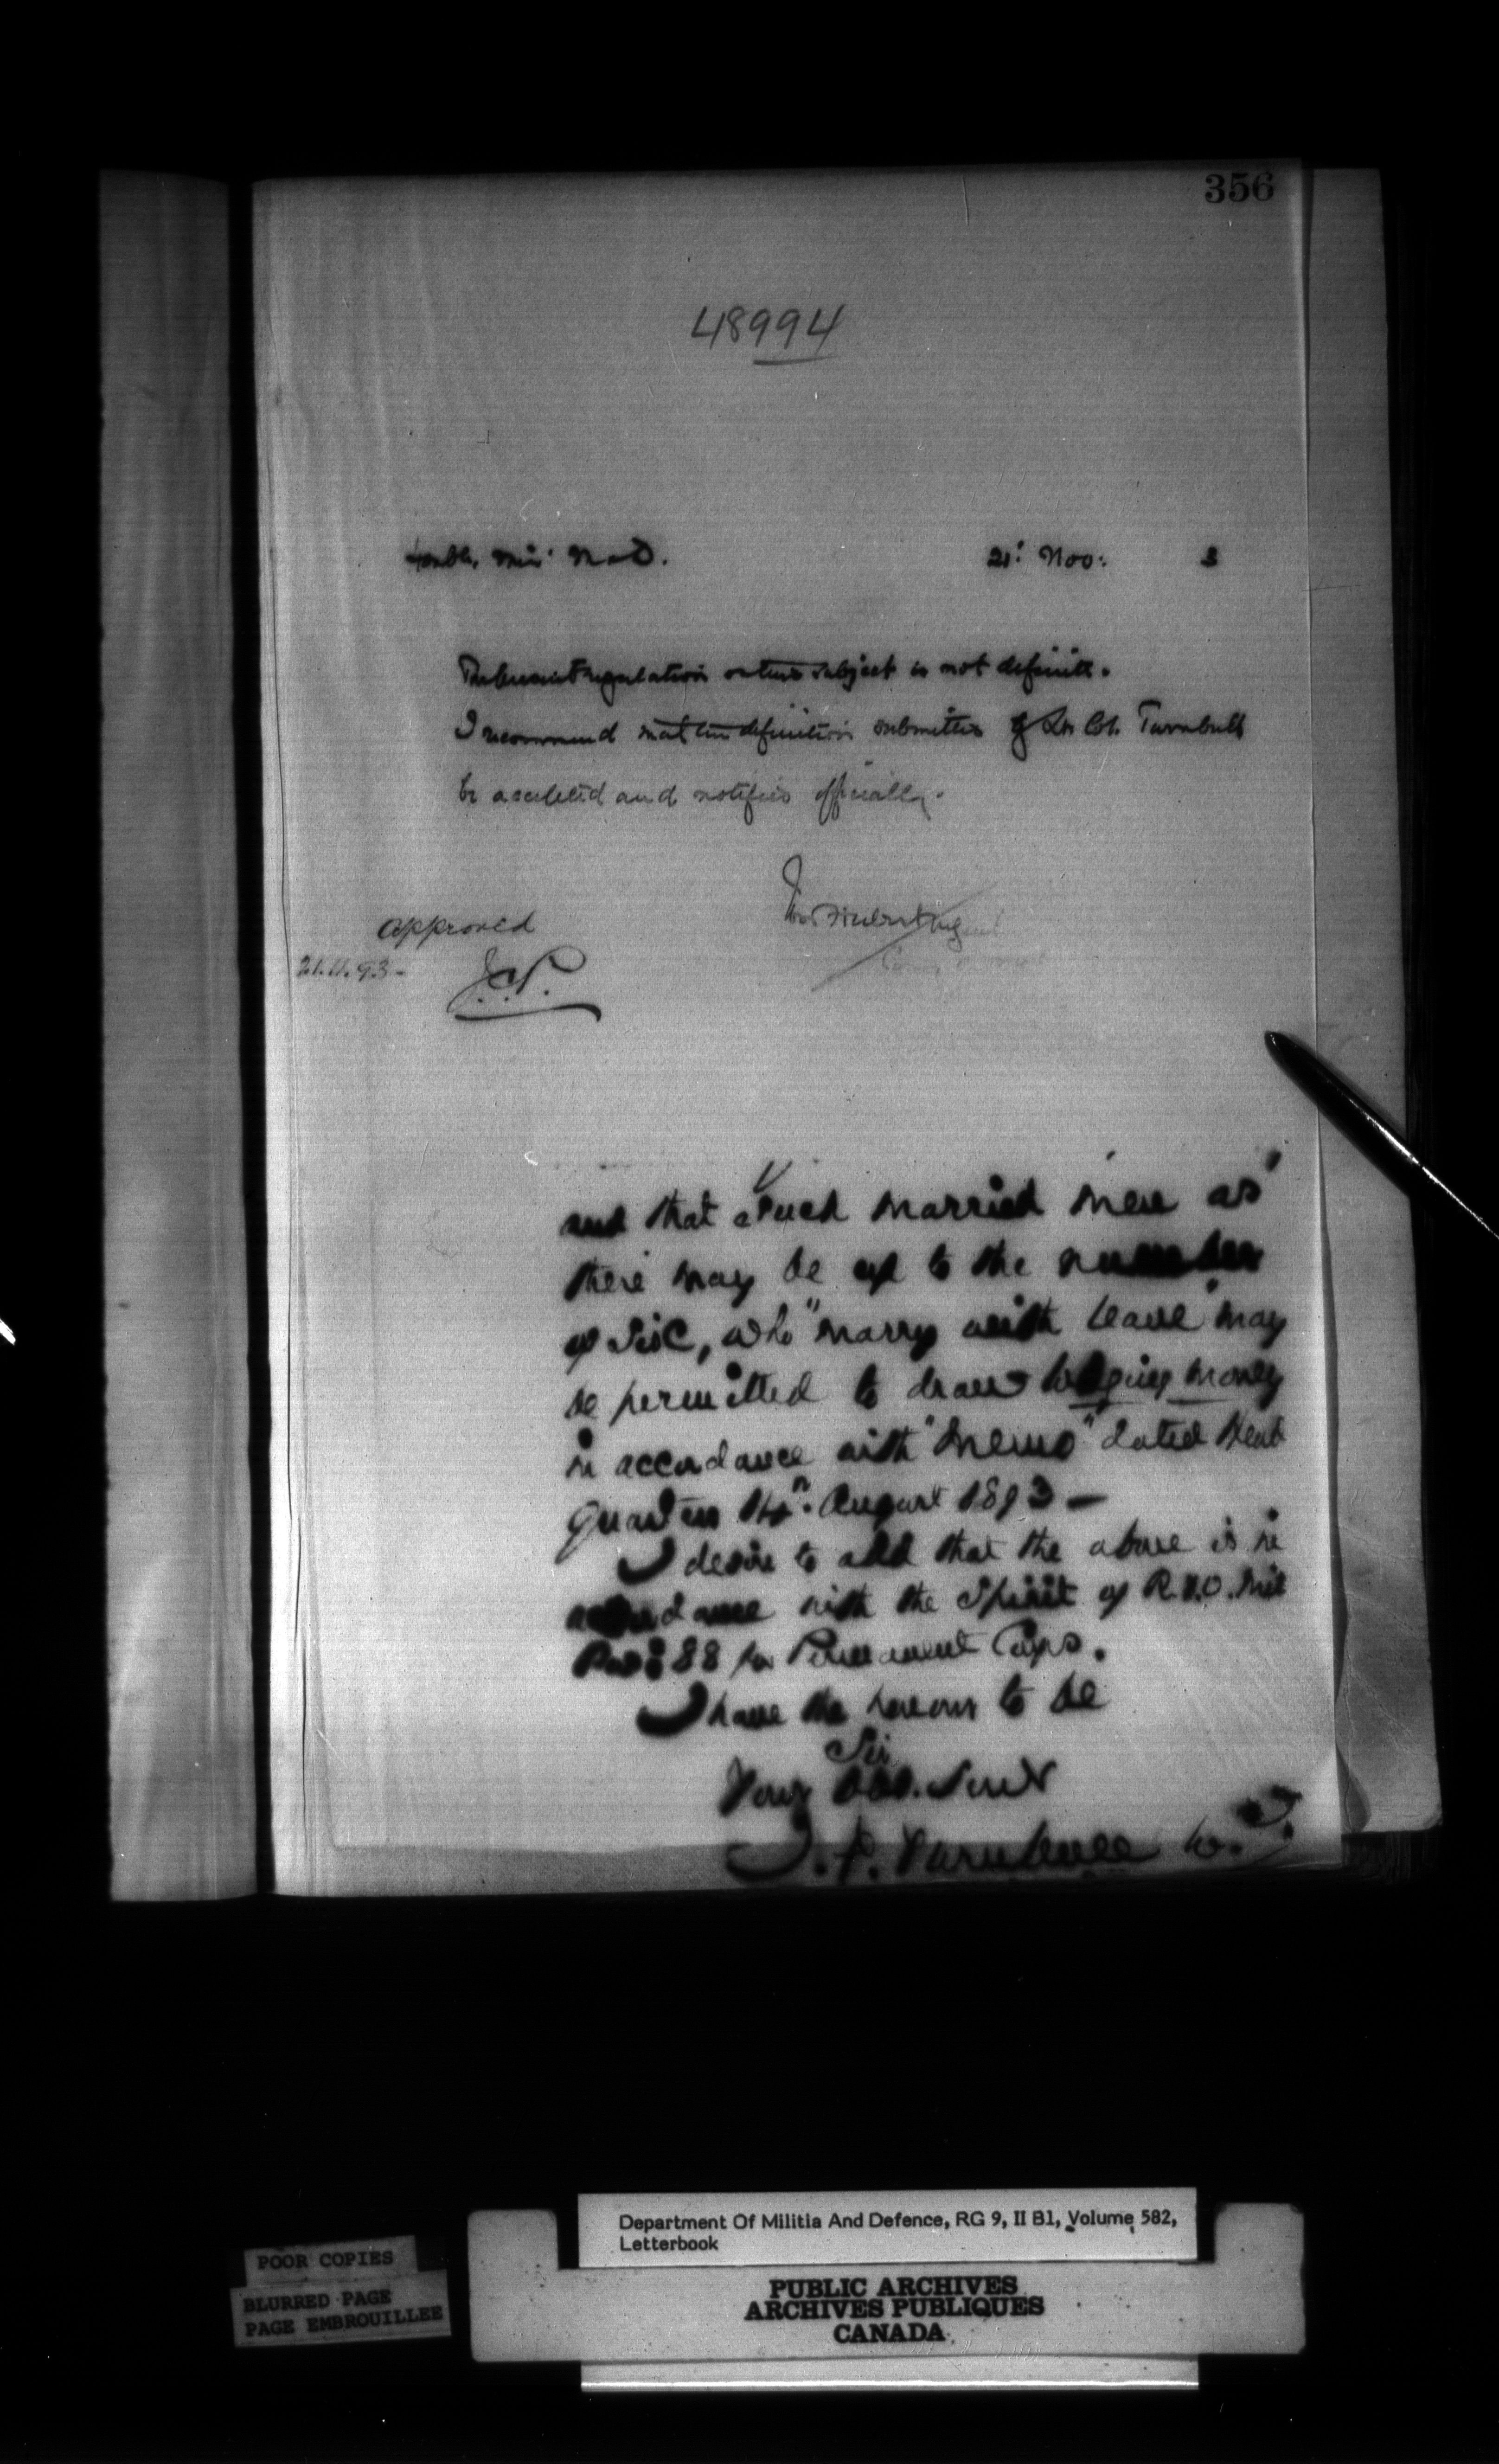 356
48994
Honble. Min: M & D. 21: Nov: 3
The present regulation on this subject is not definite.
I recommend that the definition submitted by Lt. Col. Turnbull
be accepted and notified officially.
Approved
21.11.93-
J.C.P.
and that such married men as
there may be up to the number
of six, who "marry with leave" may
be permitted to draw lodging money
in accordance with "Memo" dated Head
Quarters 14th August 1893 -
I desire to add that the above is in
accordance with the Spirit of R. & O. Mil
Para: 88 for Permanent Corps.
I have the honour to be
Sir
Your Obd. Servt
J. F. Turnbull
Department Of Militia And Defence, RG 9, II B1, Volume 582,
Letterbook
POOR COPIES
BLURRED PAGE
PAGE EMBROUILLEE
PUBLIC ARCHIVES
ARCHIVES PUBLIQUES
CANADA